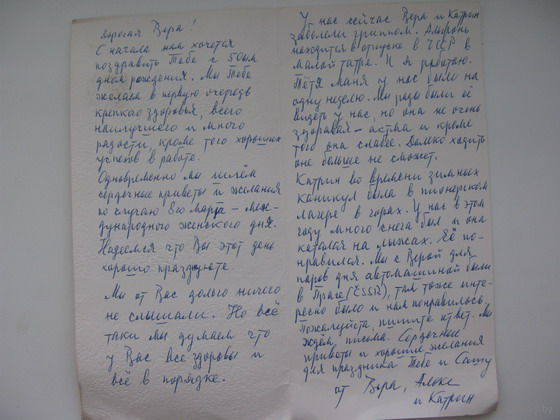 Дорогая Вера!
С начала нам хочется
поздравить Тебе с 50ым
днём рождения. Мы Тебе
желаем в первую очередь
крепкого здоровья, всего
наилучшего и много
радости, кроме того хороших
успехов в работе.
Одновременно мы шлём
сердечные приветы и желания
по случаю 8го Марта - меж-
дународного женского дня.
Надеемся что Вы этот день
хорошо празднуете.
Мы от Вас долго ничего
не слышали. Но всё
таки мы думаем что
у Вас все здоровы и
всё в порядке.
У нас сейчас Вера и Катрин
заболели гриппом.
находится в отпуске в ЧССР в
малой татре. И я работаю.
Тётя Маня у нас была на
одну неделю. Мы рады были её
видеть у нас, но она не очень
здоровая - астма и кроме
того она слабее. Далько ходить
оне больше не сможет.
Катрин во времени зимных
каникул была в пионерском
лагере в горах. У нас в этом
году много снега был и она
каталея на лыжах. Её по-
нравился. Мы с Верой для
паров дня автомашиной были
в Праге (ČSSR), там тоже инте-
ресно было и нам понравилось.
Пожалуйста, пишите ответ. Мы
ждем, письма. Сердечные
приветы и хорошие желания
для праздника Тебе и Сашу
от Вера, Алекс
и Катрин